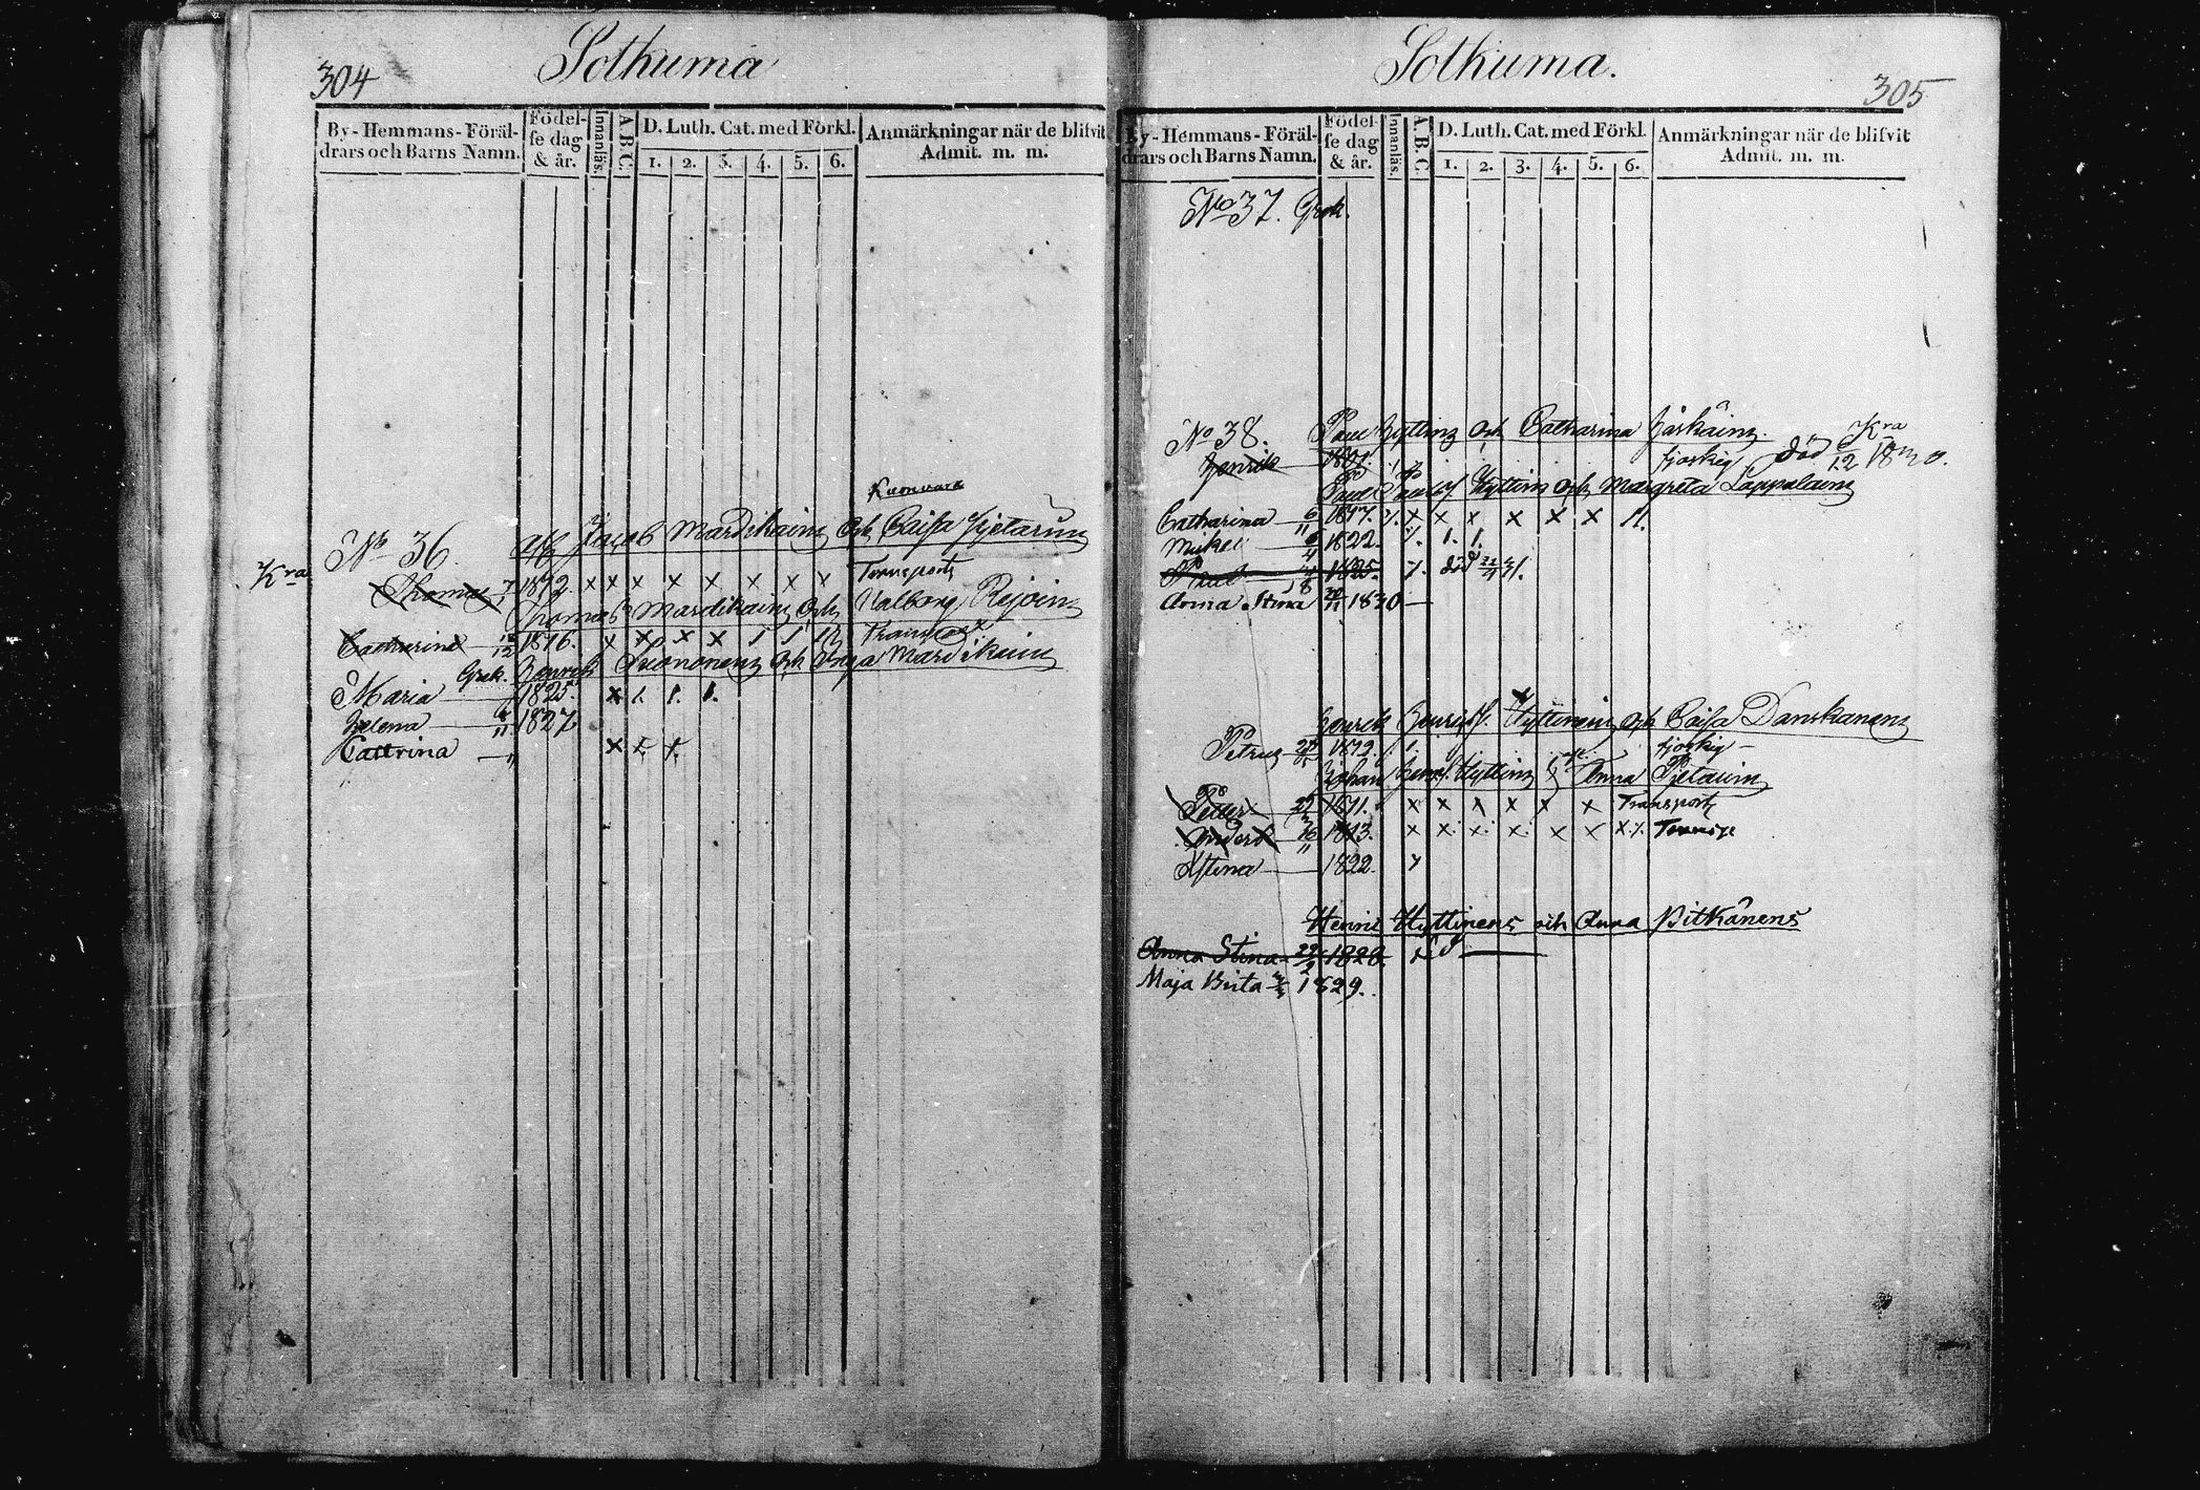 304
Sotkuma
By-Hemmans-Föräl-
drars och Barns Namn.
Födel-
se dag
& år.
Innanläs.
A.B.C.
D. Luth. Cat. med Förkl.
1. 2. 3. 4. 5. 6.
Anmärkningar när de blifvit
Admit. m. m.
Kuonvara
No 36. Aff Jacob Mardikain och Caisa Pjetarin
Kra
Thomas 1812. x x x x x x x x Transport
Thomas Mardikain och Valborg Rejoin
Catharina 1816. x x x x Transport
Grek. Henrik Suononen och Inga Mardikain
Maria 1825. x 1. 1. 1.
Helena 1827
Cattrina x
Sotkuma.
305
By-Hemmans-Föräl-
drars och Barns Namn.
Födel-
se dag
& år.
Innanläs.
A.B.C.
D. Luth. Cat. med Förkl.
1. 2. 3. 4. 5. 6.
Anmärkningar när de blifvit
Admit. m. m.
No 37. Grek.
No 38. Paul Hyttinz och Catharina Jäskäinz. Kra
Henrik 1801. sjoskig död 6/12 1830.
Paul Paulss. Hyttinz och Margreta Lappalainz
Catharina 6/11 1817. x x x x x x
Mickel 1822. 1. 1.
Paul 1825. död
Anna Stina 20/11 1830
Henrik Henrikss. Hyttinein och Caisa Danskanenz
Petrus 1819. sjoskig
Johan Henss. Hyttinz Anna Pjetarin
Petter 1811. x x x x x x Transport
Anders 16/11 1813. x x x x x x
Stina 1822.
Henric Hyttinens och Anna Pitkänens
Anna Stina 29/2 1828.
Maja Brita 1829.